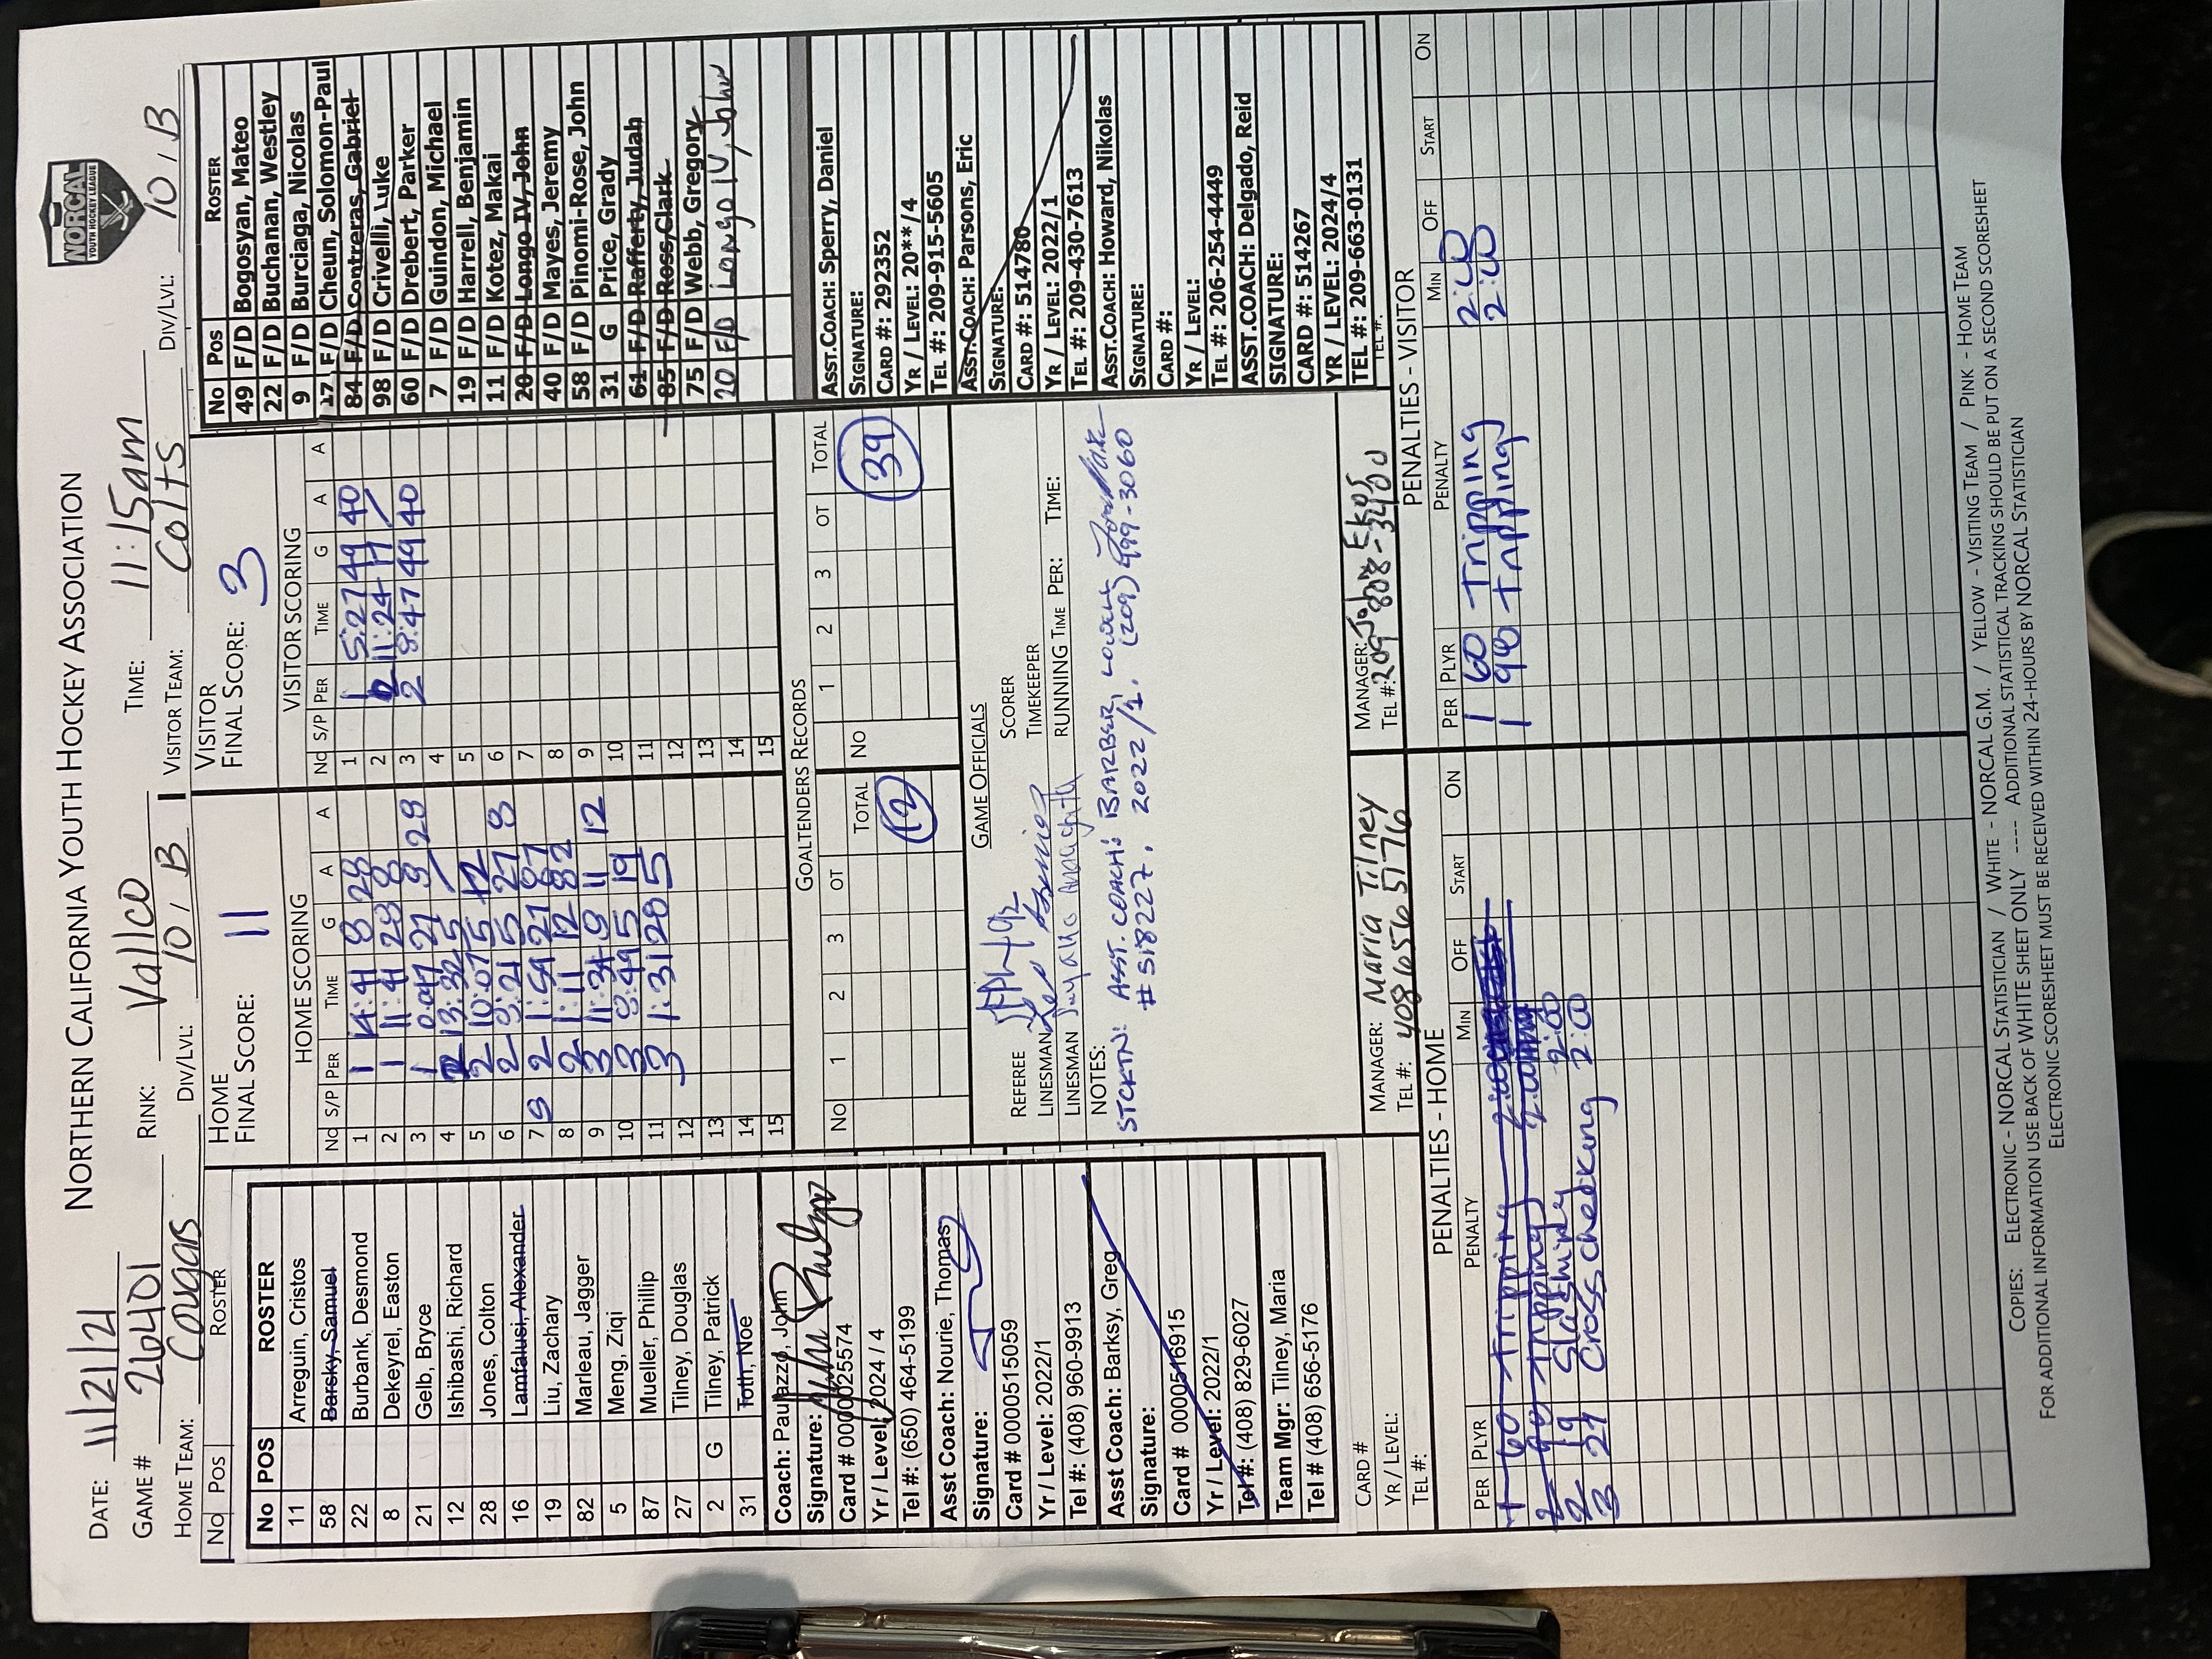 NORTHERN CALIFORNIA YOUTH HOCKEY ASSOCIATION
NORCAL
YOUTH HOCKEY LEAGUE
DATE: 11/21/21
GAME # 26401 RINK: Vallco TIME: 11:15am
HOME TEAM: Cougars DIV/LVL: 10 / B VISITOR TEAM: Colts DIV/LVL: 10 / B
No Pos ROSTER
No POS ROSTER
11 Arreguin, Cristos
58 Barsky, Samuel
22 Burbank, Desmond
8 Dekeyrel, Easton
21 Gelb, Bryce
12 Ishibashi, Richard
28 Jones, Colton
16 Lamfalusi, Alexander
19 Liu, Zachary
82 Marleau, Jagger
5 Meng, Ziqi
87 Mueller, Phillip
27 Tilney, Douglas
2 G Tilney, Patrick
31 Toth, Noe
Coach: Paulazzo, John
Signature:
Card # 0000025574
Yr / Level: 2024 / 4
Tel #: (650) 464-5199
Asst Coach: Nourie, Thomas
Signature:
Card # 0000515059
Yr / Level: 2022/1
Tel #: (408) 960-9913
Asst Coach: Barksy, Greg
Signature:
Card # 0000516915
Yr / Level: 2022/1
Tel #: (408) 829-6027
Team Mgr: Tilney, Maria
Tel # (408) 656-5176
CARD #
YR / LEVEL:
TEL #:
HOME
FINAL SCORE: 11
HOME SCORING
No S/P PER TIME G A A
1 1 14:41 8 28
2 1 11:41 28 8
3 1 0:47 27 9 28
4 2 13:32 5 /
5 2 10:07 5 12
6 2 5:21 5 27 8
7 S 2 1:59 27 87
8 2 1:11 12 82
9 3 11:34 8 11 12
10 3 8:49 5 19
11 3 1:31 28 5
12
13
14
15
VISITOR
FINAL SCORE: 3
VISITOR SCORING
No S/P PER TIME G A A
1 1 5:27 49 40
2 2 11:24 17 /
3 2 8:47 49 40
4
5
6
7
8
9
10
11
12
13
14
15
No Pos ROSTER
49 F/D Bogosyan, Mateo
22 F/D Buchanan, Westley
9 F/D Burciaga, Nicolas
17 F/D Cheun, Solomon-Paul
84 F/D Contreras, Gabriel
98 F/D Crivelli, Luke
60 F/D Drebert, Parker
7 F/D Guindon, Michael
19 F/D Harrell, Benjamin
11 F/D Kotez, Makai
20 F/D Longo IV, John
40 F/D Mayes, Jeremy
58 F/D Pinomi-Rose, John
31 G Price, Grady
61 F/D Rafferty, Judah
85 F/D Ross, Clark
75 F/D Webb, Gregory
20 F/D Longo IV, John
GOALTENDERS RECORDS
No 1 2 3 OT TOTAL No 1 2 3 OT TOTAL
12 39
GAME OFFICIALS
REFEREE SCORER
LINESMAN TIMEKEEPER
LINESMAN RUNNING TIME PER: TIME:
NOTES:
STCKTN: ASST. COACH: BARBER,
# 518227. 2022/1. (209) 499-3060
ASST.COACH: Sperry, Daniel
SIGNATURE:
CARD #: 292352
YR / LEVEL: 20**/4
TEL #: 209-915-5605
ASST.COACH: Parsons, Eric
SIGNATURE:
CARD #: 514780
YR / LEVEL: 2022/1
TEL #: 209-430-7613
ASST.COACH: Howard, Nikolas
SIGNATURE:
CARD #:
YR / LEVEL:
TEL #: 206-254-4449
ASST.COACH: Delgado, Reid
SIGNATURE:
CARD #: 514267
YR / LEVEL: 2024/4
TEL #: 209-663-0131
TEL #:
MANAGER: Maria Tilney
TEL #: 408 656 5176
MANAGER: John Ekos
TEL #: 209-808-3400
PENALTIES - HOME
PER PLYR PENALTY MIN OFF START ON
1 60 Tripping
2 98 Tripping
2 19 Slashing 2:00
3 27 Cross checking 2:00
PENALTIES - VISITOR
PER PLYR PENALTY MIN OFF START ON
1 60 Tripping 2:00
1 98 Tripping 2:00
COPIES: ELECTRONIC - NORCAL STATISTICIAN / WHITE - NORCAL G.M. / YELLOW - VISITING TEAM / PINK - HOME TEAM
FOR ADDITIONAL INFORMATION USE BACK OF WHITE SHEET ONLY ---- ADDITIONAL STATISTICAL TRACKING SHOULD BE PUT ON A SECOND SCORESHEET
ELECTRONIC SCORESHEET MUST BE RECEIVED WITHIN 24-HOURS BY NORCAL STATISTICIAN